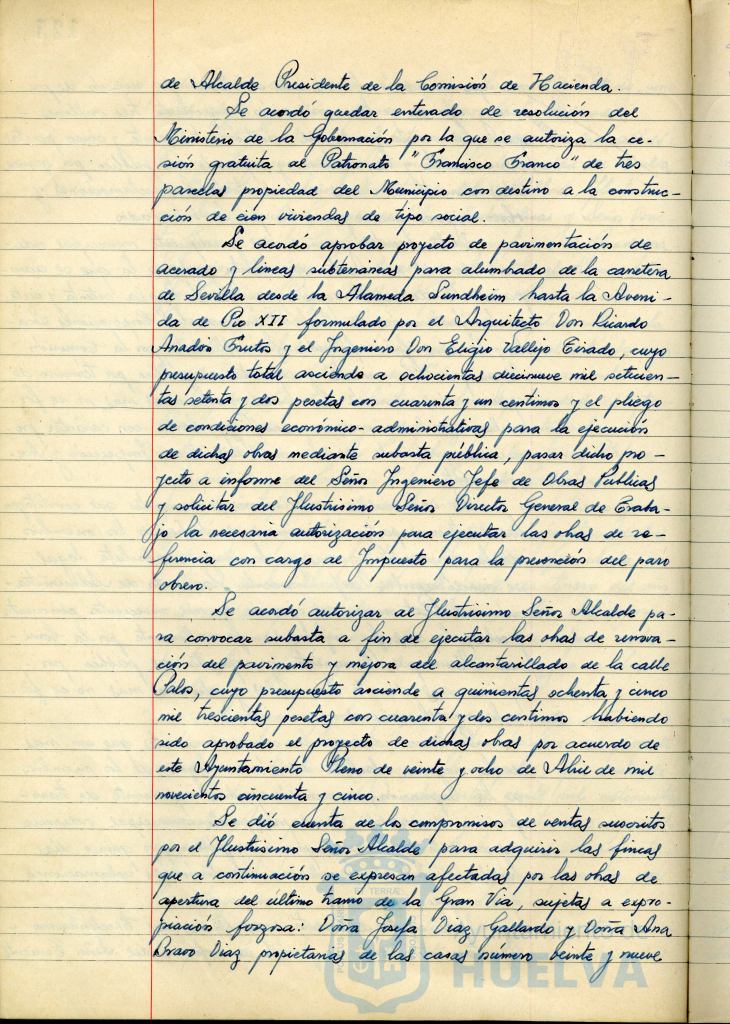 de Alcalde Presidente de la Comisión de Hacienda.
Se acordó quedar enterado de resolución del
Ministerio de la Gobernación por la que se autoriza la ce-
sión gratuita al Patronato "Francisco Franco" de tres
parcelas propiedad del Municipio con destino a la construc-
ción de cien viviendas de tipo social.
Se acordó aprobar proyecto de pavimentación de
acerado y lineas subterráneas para alumbrado de la carretera
de Sevilla desde la Alameda Sundheim hasta la Aveni-
da de Pio XII formulado por el Arquitecto Don Ricardo
Anadón Frutos y el Ingeniero Don Eligio Vallejo Tirado, cuyo
presupuesto total asciende a ochocientas diecinueve mil setecien-
tas setenta y dos pesetas con cuarenta y un centimos y el pliego
de condiciones económico-administrativas para la ejecución
de dichas obras mediante subasta pública, pasar dicho pro-
yecto a informe del Señor Ingeniero Jefe de Obras Públicas
y solicitar del Ilustrisimo Señor Director General de Traba-
jo la necesaria autorización para ejecutar las obras de re-
ferencia con cargo al Impuesto para la prevención del paro
obrero.
Se acordó autorizar al Ilustrisimo Señor Alcalde pa-
ra convocar subasta a fin de ejecutar las obras de renova-
ción del pavimento y mejora del alcantarillado de la calle
Palos, cuyo presupuesto asciende a quinientas ochenta y cinco
mil trescientas pesetas con cuarenta y dos centimos habiendo
sido aprobado el proyecto de dichas obras por acuerdo de
este Ayuntamiento Pleno de veinte y ocho de Abril de mil
novecientos cincuenta y cinco.
Se dió cuenta de los compromisos de ventas suscritos
por el Ilustrisimo Señor Alcalde para adquirir las fincas
que a continuación se expresan afectadas por las obras de
apertura del último tramo de la Gran Via, sujetas a expro-
piación forzosa: Doña Josefa Diaz Gallardo y Doña Ana
Bravo Diaz propietarias de las casas número veinte y nueve
HUELVA